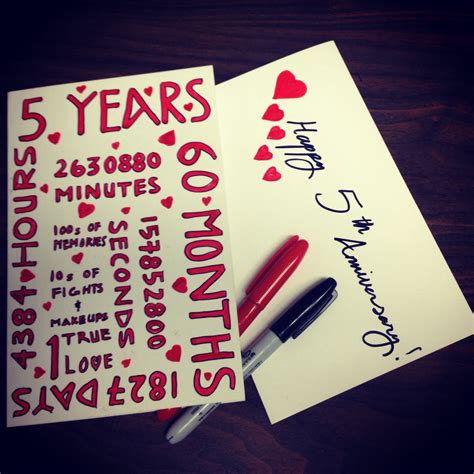 5 YEARS
60 MONTHS
1827 DAYS
4384 HOURS
2630880
MINUTES
157852800
SECONDS
100s OF
MEMORIES
10s OF
FIGHTS
&
MAKEUPS
1 TRUE
LOVE
Happy
5th
Anniversary!